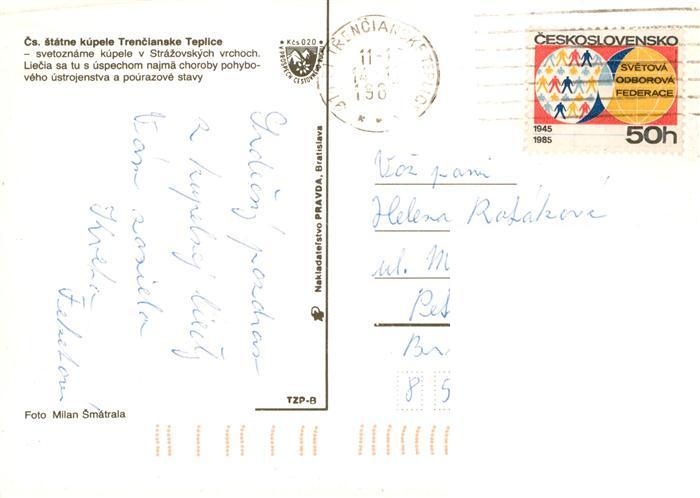 Čs. štátne kúpele Trenčianske Teplice
– svetoznáme kúpele v Strážovských vrchoch.
Liečia sa tu s úspechom najmä choroby pohybo-
vého ústrojenstva a poúrazové stavy
Kčs 020
TRENČIANSKE TEPLICE
11-
198
ČESKOSLOVENSKO
SVĚTOVÁ
ODBOROVÁ
FEDERACE
1945
1985
50h
Srdečný pozdrav
z kúpeľnej liečby
Vám zasiela
Kveta
Nakladateľstvo PRAVDA, Bratislava
Vož pani
Helena Rožáková
ul. M
Bra
8 5
TZP-B
Foto Milan Šmátrala